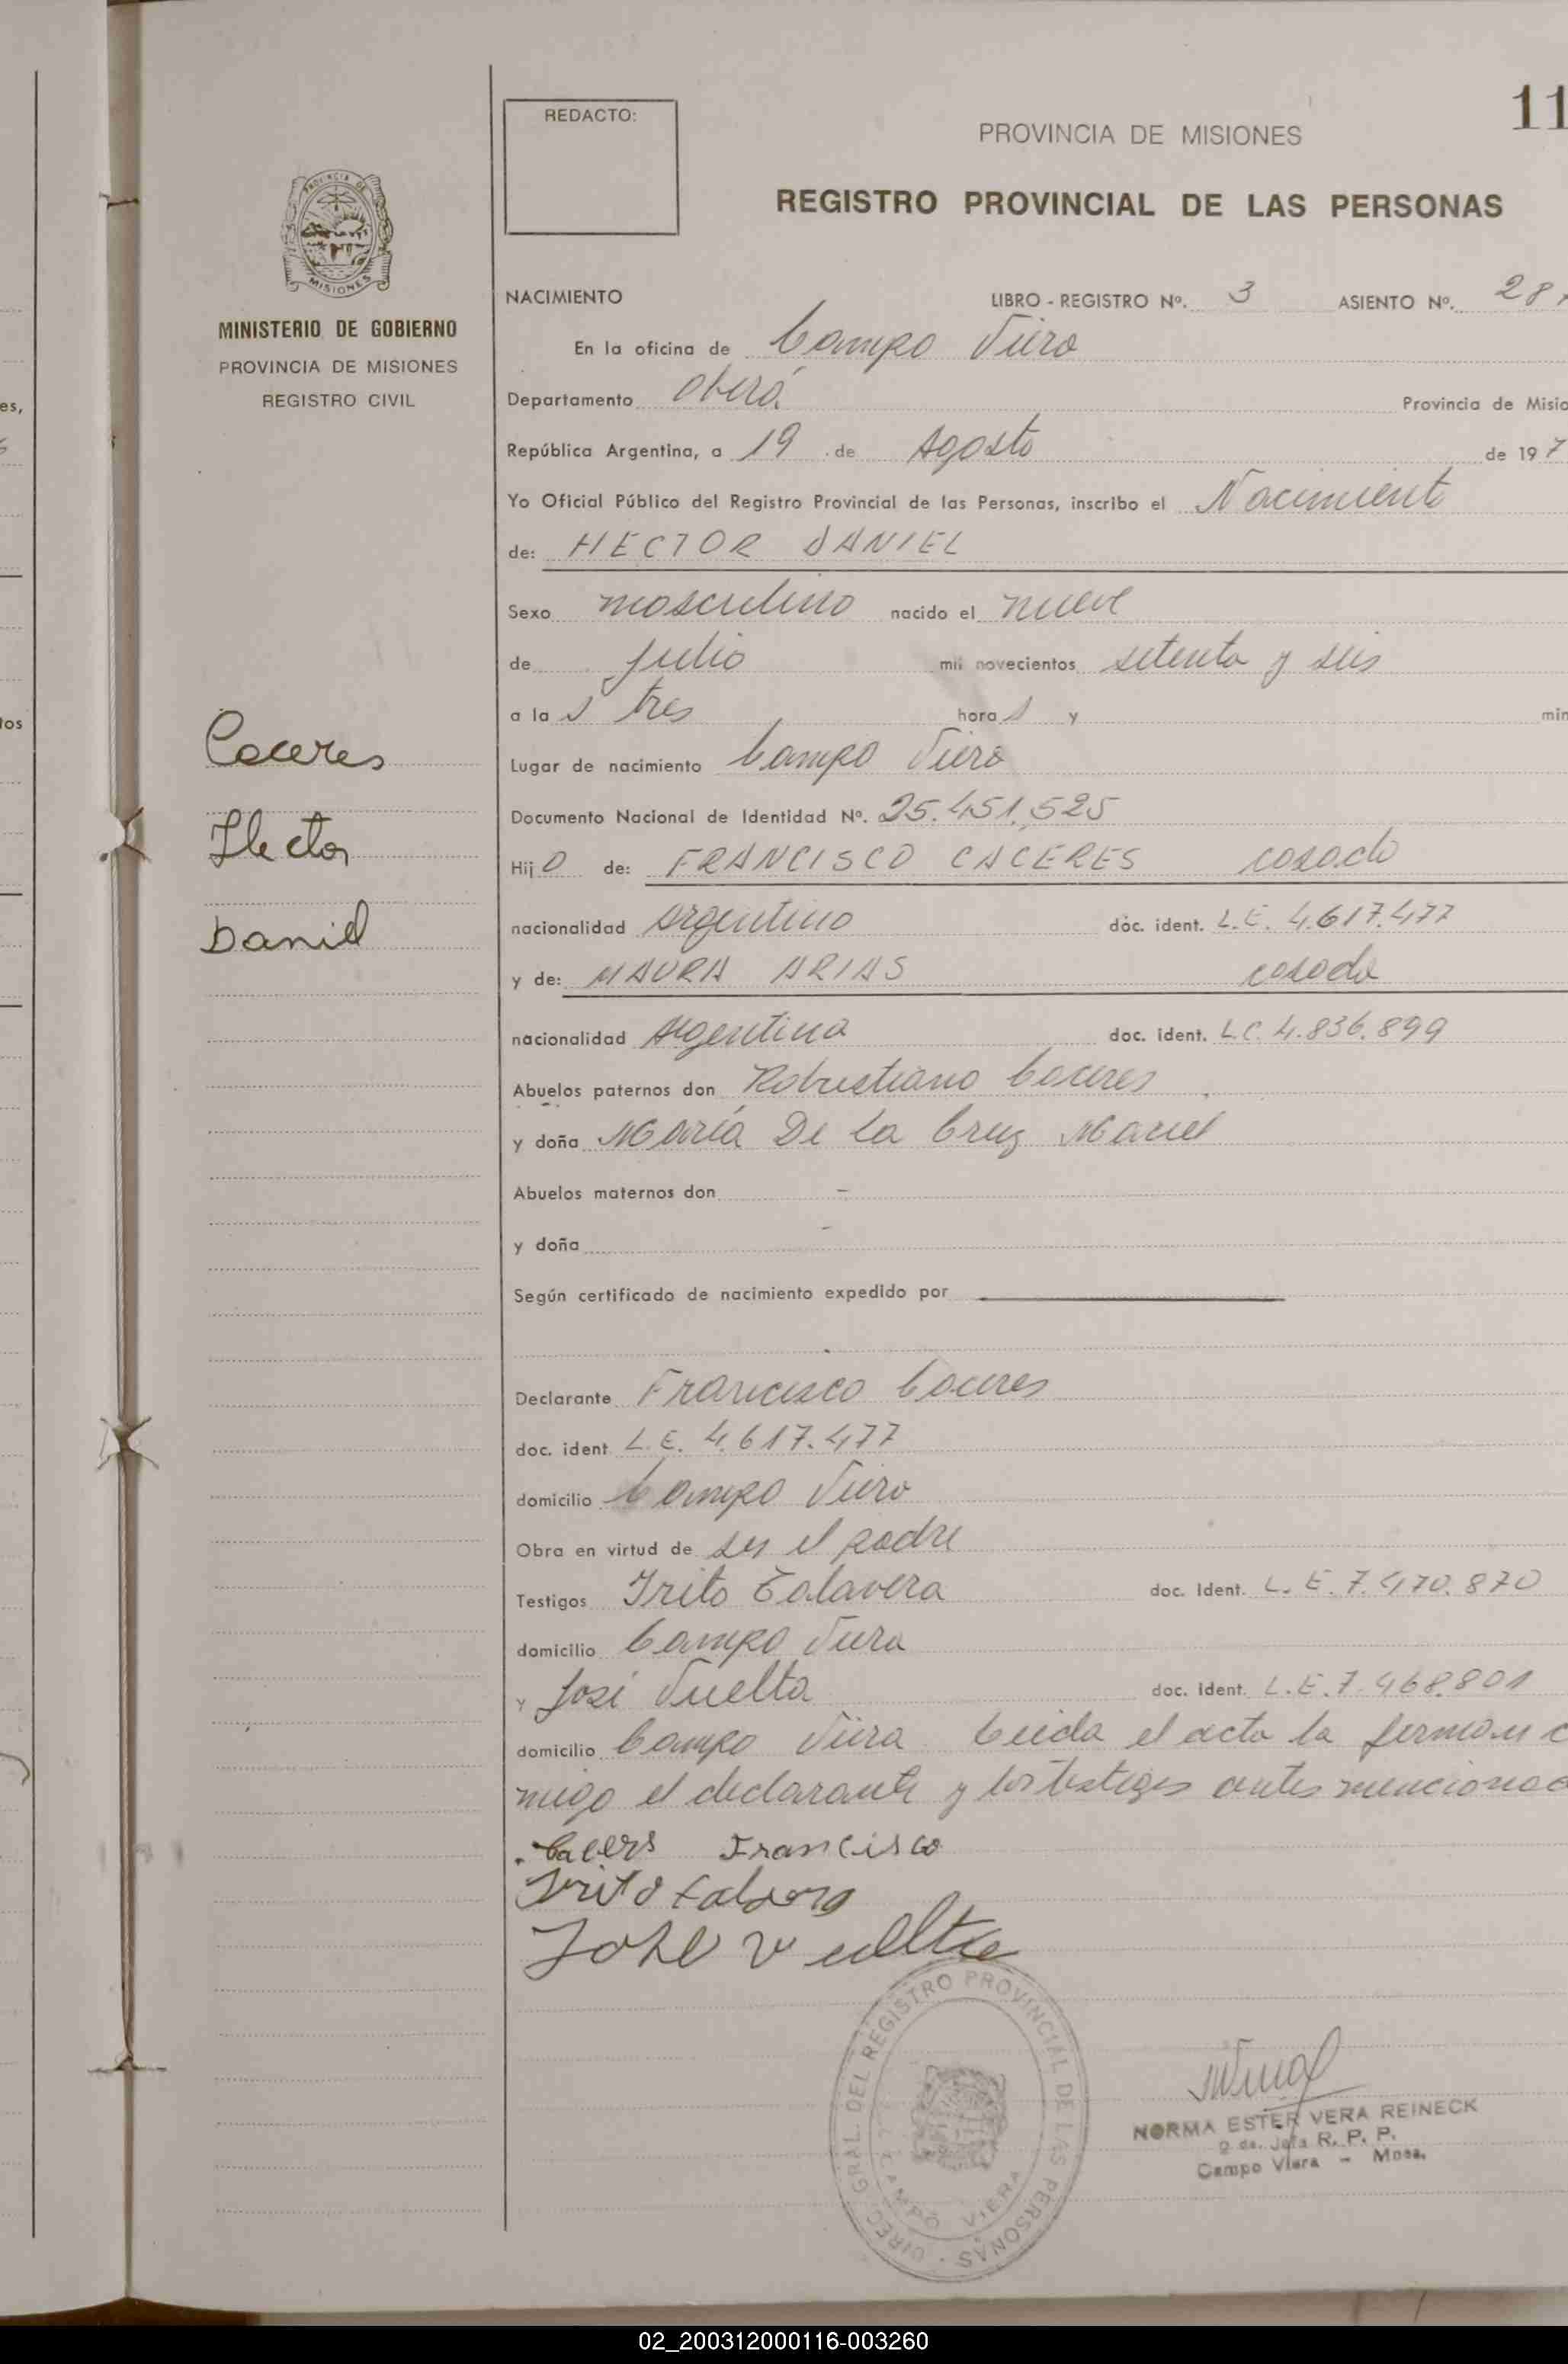 11
REDACTO:
PROVINCIA DE MISIONES
REGISTRO PROVINCIAL DE LAS PERSONAS
PROVINCIA DE
MISIONES
MINISTERIO DE GOBIERNO
PROVINCIA DE MISIONES
REGISTRO CIVIL
es,
tos
Caceres
Hector
Daniel
NACIMIENTO LIBRO - REGISTRO Nº. 3 ASIENTO Nº. 28
En la oficina de Campo Viera
Departamento Oberá Provincia de Misio
República Argentina, a 19 de Agosto de 197
Yo Oficial Público del Registro Provincial de las Personas, inscribo el Nacimiento
de: HECTOR DANIEL
Sexo masculino nacido el nueve
de julio mil novecientos setenta y seis
a las tres horas y min
Lugar de nacimiento Campo Viera
Documento Nacional de Identidad Nº. 25.451.525
Hijo de: FRANCISCO CACERES casado
nacionalidad Argentino doc. ident. L.E. 4.617.477
y de: MAURA ARIAS casada
nacionalidad Argentina doc. ident. L.C. 4.836.899
Abuelos paternos don Robustiano Caceres
y doña María De La Cruz Maciel
Abuelos maternos don -
y doña -
Según certificado de nacimiento expedido por
Declarante Francisco Caceres
doc. ident. L.E. 4.617.477
domicilio Campo Viera
Obra en virtud de ser el padre
Testigos Irito Talavera doc. Ident. L.E. 7.470.870
domicilio Campo Viera
y José Vuelta doc. Ident. L.E. 7.468.801
domicilio Campo Viera Leida el acta la firman c
migo el declarante y los testigos antes mencionad
Cacers Francisco
Irito
José Vuelta
DIREC. GRAL. DEL REGISTRO PROVINCIAL DE LAS PERSONAS
CAMPO VIERA
NORMA ESTER VERA REINECK
2 da. Jefa R. P. P.
Campo Viera - Mnes.
02_200312000116-003260